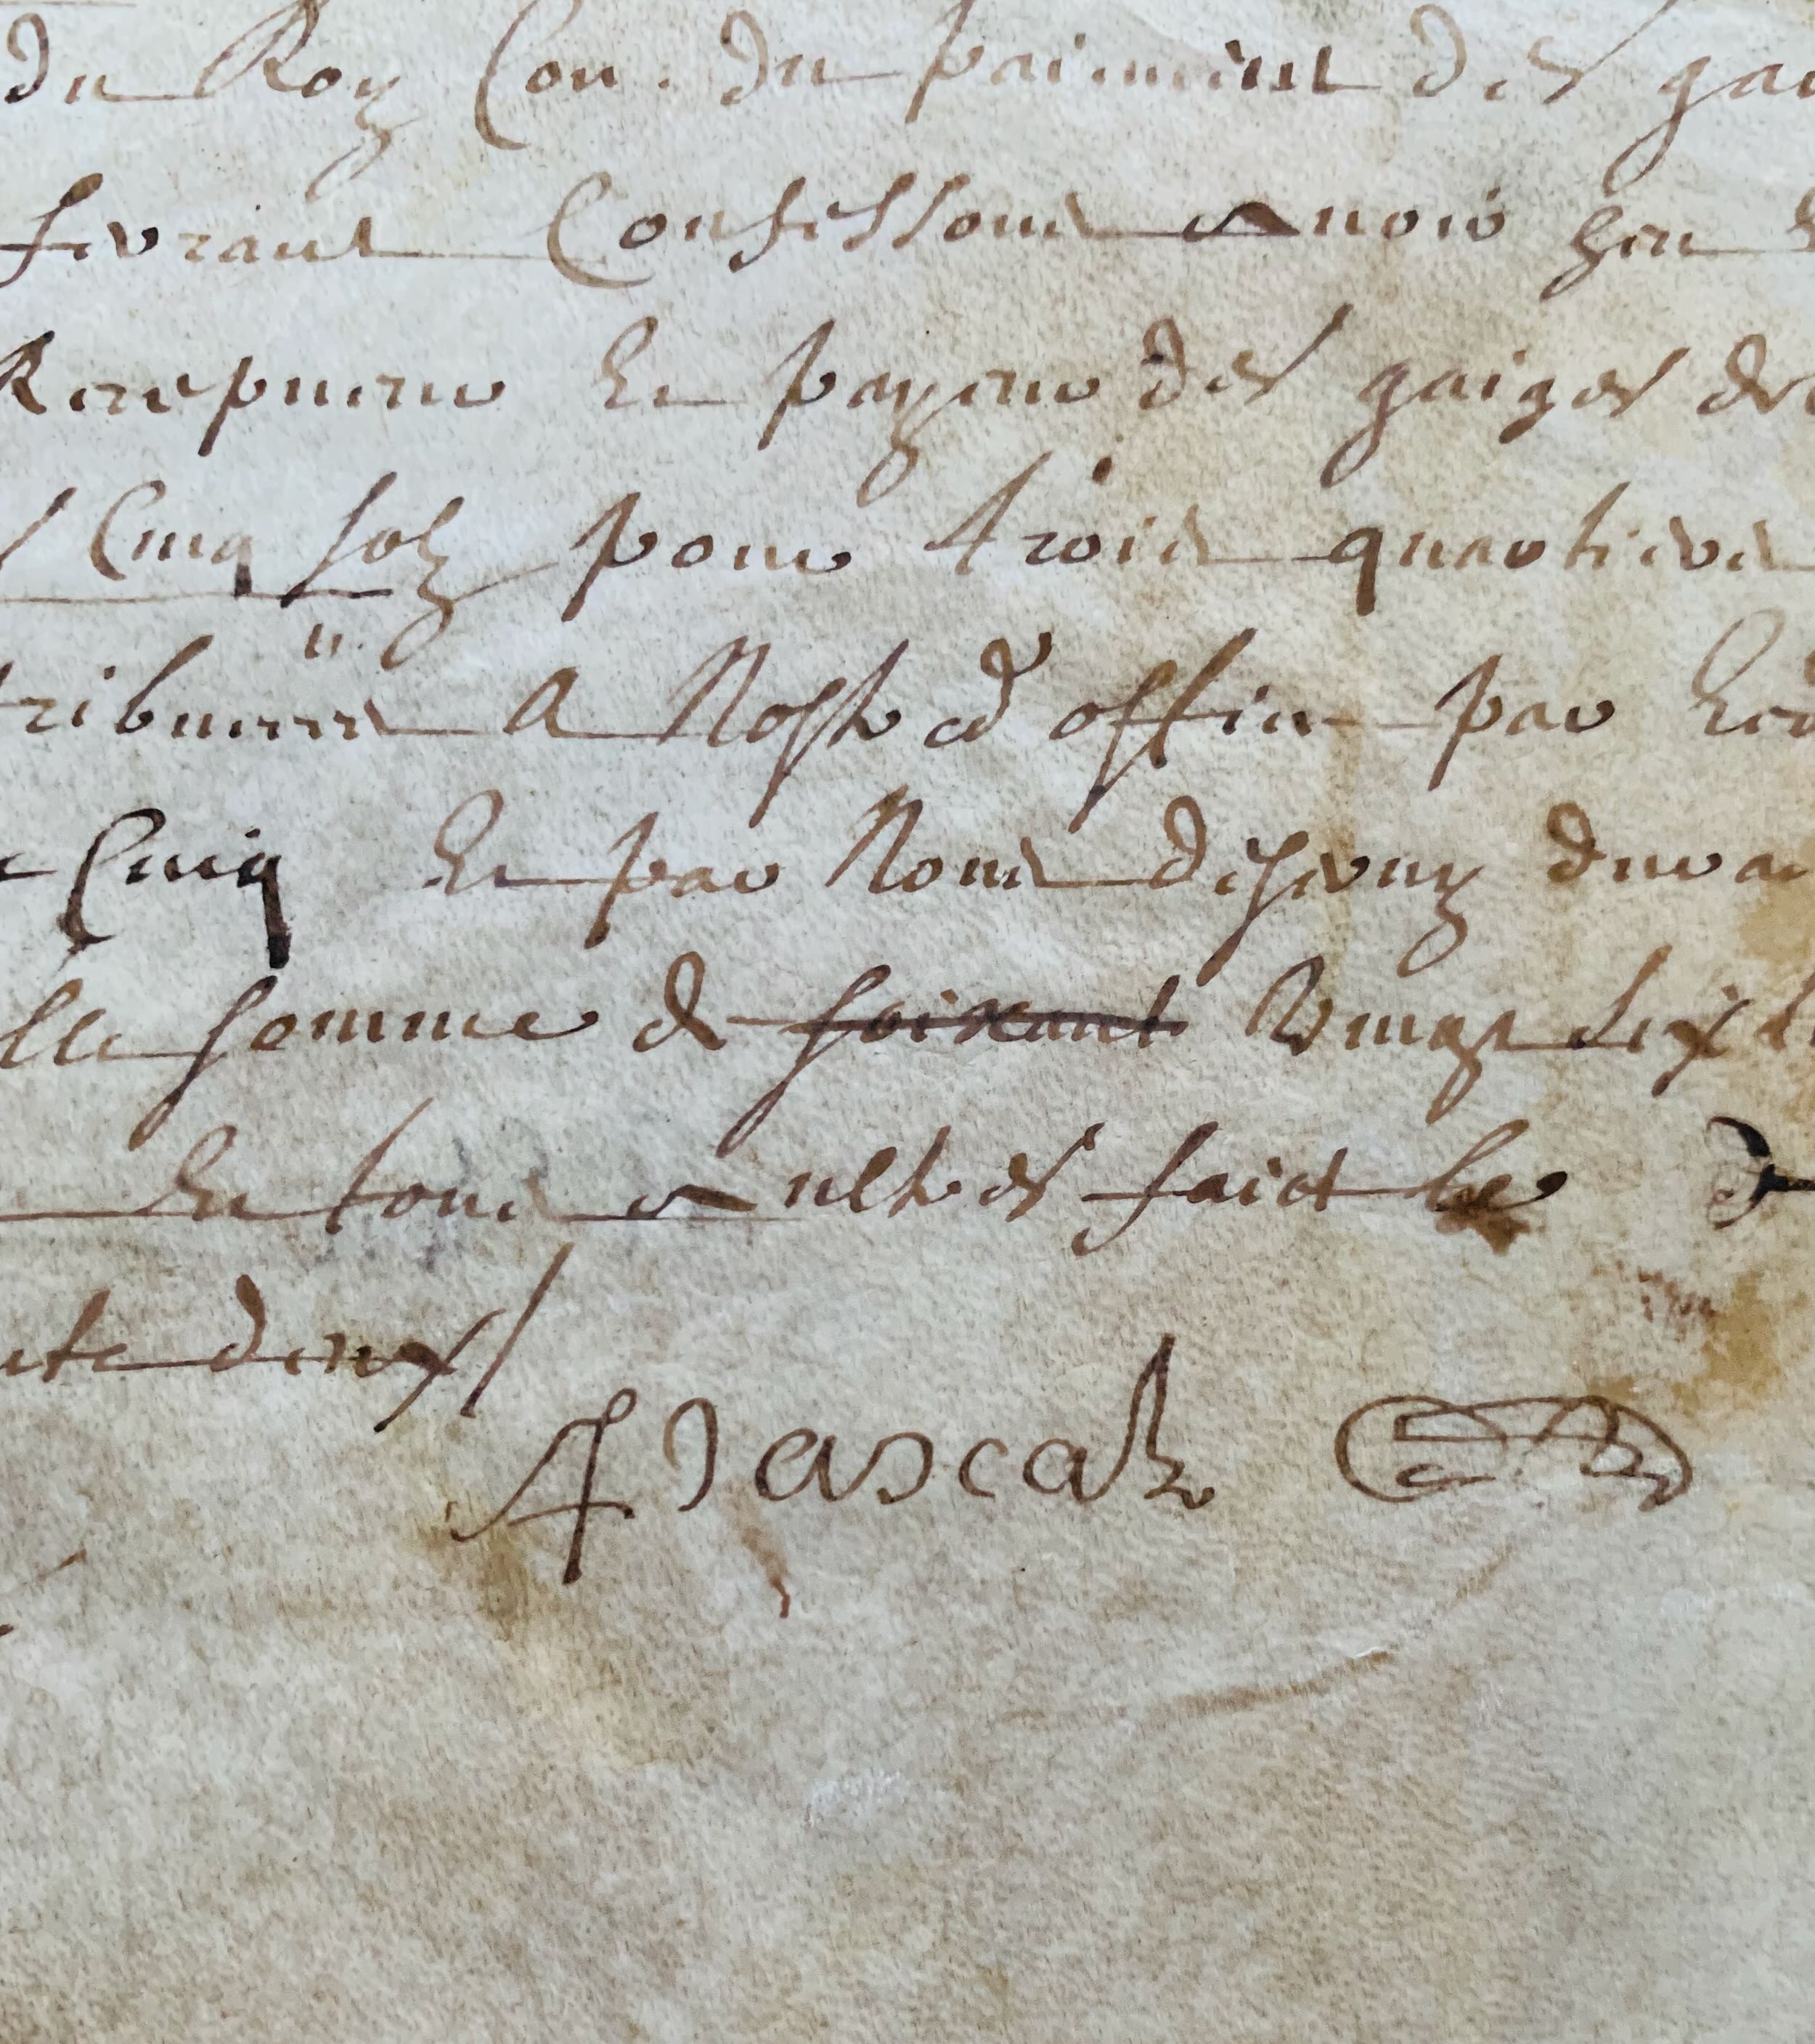 du Roy Con. du paiment des gai
ferrant Confessons avoir heu
Recepueur et payeur des gaiges de
Cinq solz pour trois quartiers
tribuees A Nostred office par
Cinq Et par Nous deserviz durant
lle somme de soixant Vingt six
Et tous aultres faict le
nte deux
Pascal